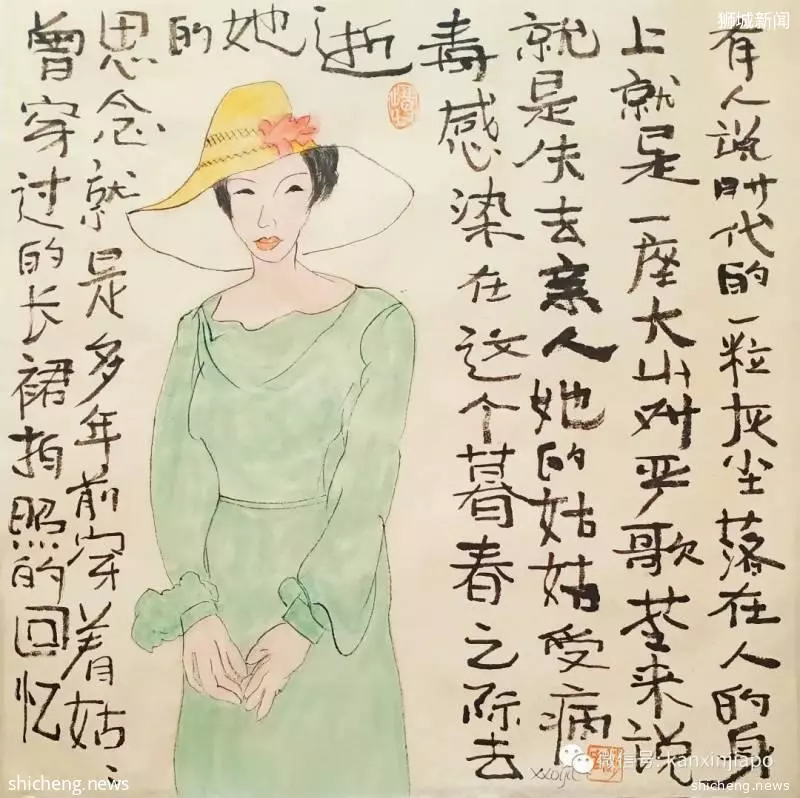 狮城新闻
有人说时代的一粒灰尘落在人的身
上就是一座大山对严歌荃来说
就是失去亲人她的姑姑受病
毒感染在这个暮春之际去
逝她的
思念就是多年前穿着姑〻
曾穿过的长裙拍照的回忆
微信号: kanxinjiapo
shicheng.news
shicheng.news